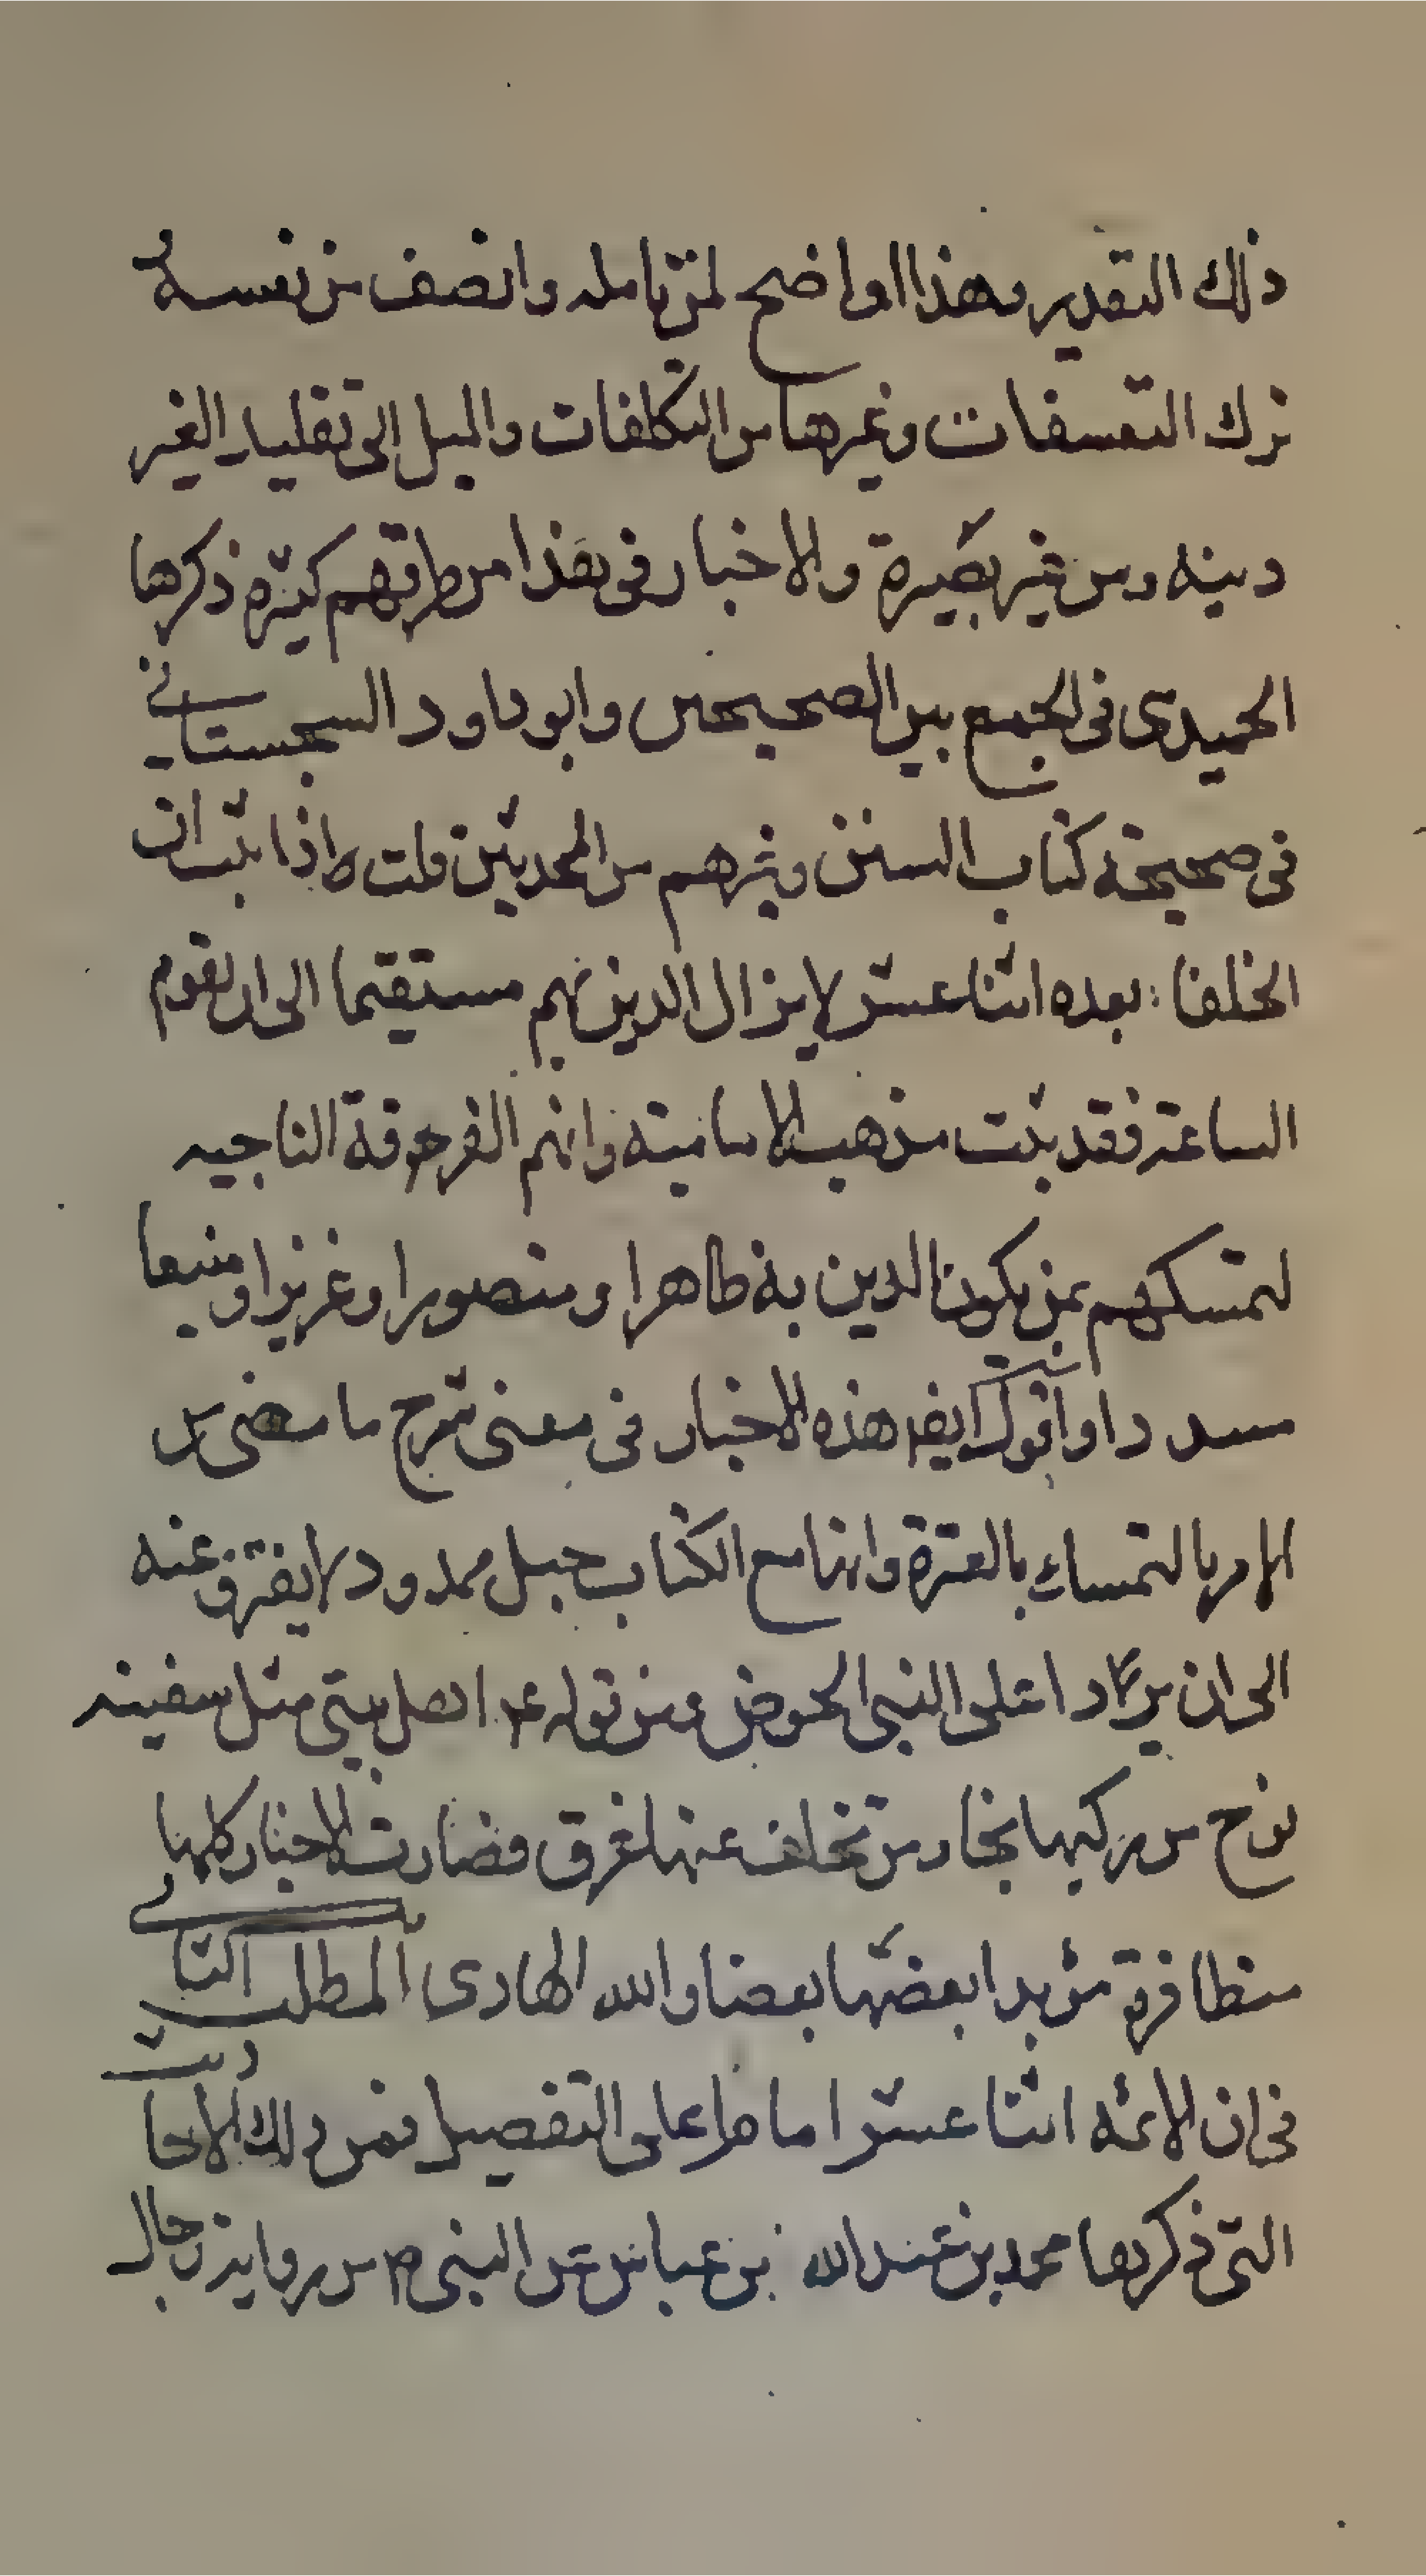 ذلك التقدير وهذا اواضح لمن تامله وانصف من نفسه و
ترك التعسفات وغيرها من التكلفات والميل الى تقليد الغير
دينه ومن غير بصيرة والاخبار فى هذا من طرقهم كثيرة ذكرها
الحميدى فى الجمع بين الصحيحين وابو داود السجستانى
فى صحيحة كتاب السنن وغيرهم من المحدثين قلت اذا ثبت ان
الخلفا بعده اثنا عشر لا يزال الدين بهم مستقيما الى ان تقوم
الساعة فقد ثبت مذهب الامامية وانهم الفرقة الناجيه
لتمسكهم بمن يكون الدين به ظاهرا ومنصورا وعزيزا ومنيعا
واقول ايضا هذه الاخبار فى معنى شرح ما مضى من
الامر بالتمسك بالعترة وانها مع الكتاب حبل ممدود لا يفترق عنه
الى ان يردا على النبى الحوض ومن قوله عم اهل بيتى مثل سفينه
نوح من ركبها نجا ومن تخلف عنها غرق فصارت الاخبار كلها
متظافرة مؤيدا بعضها بعضا والله الهادى المطلب الثانى
فى ان الائمه اثنا عشر اماما على التفصيل فمن ذلك الاحاديث
التى ذكرها محمد بن عبد الله بن عباس عن النبى ص من رواية رجال